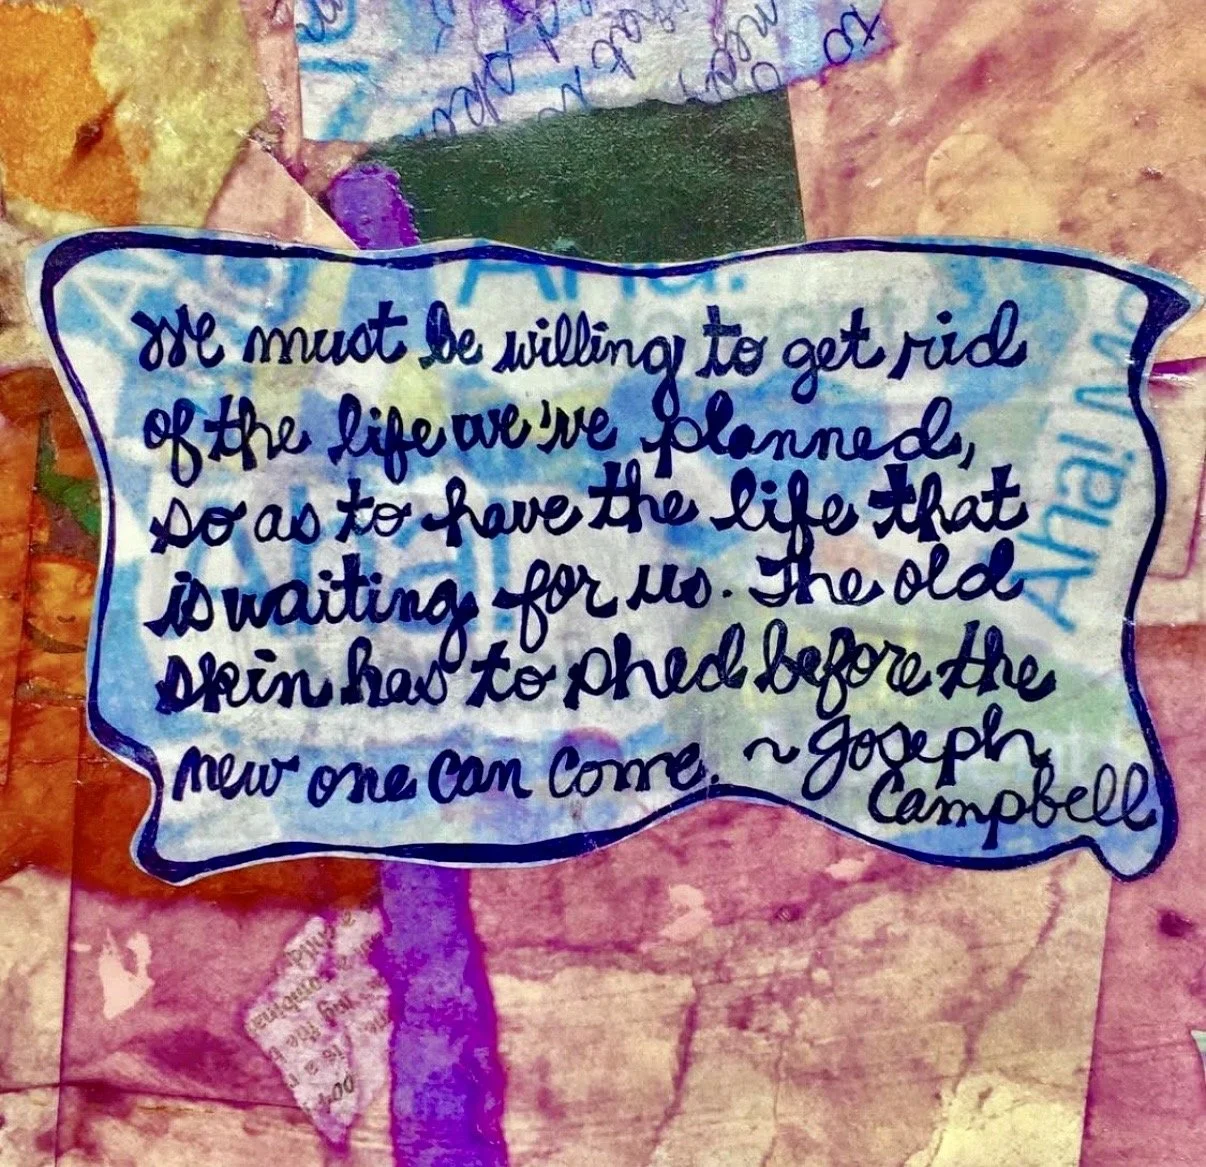 Aha!
We must be willing to get rid
of the life we've planned,
so as to have the life that
is waiting for us. The old
skin has to phed before the
new one can come. ~ Joseph
Campbell
Aha! Mo